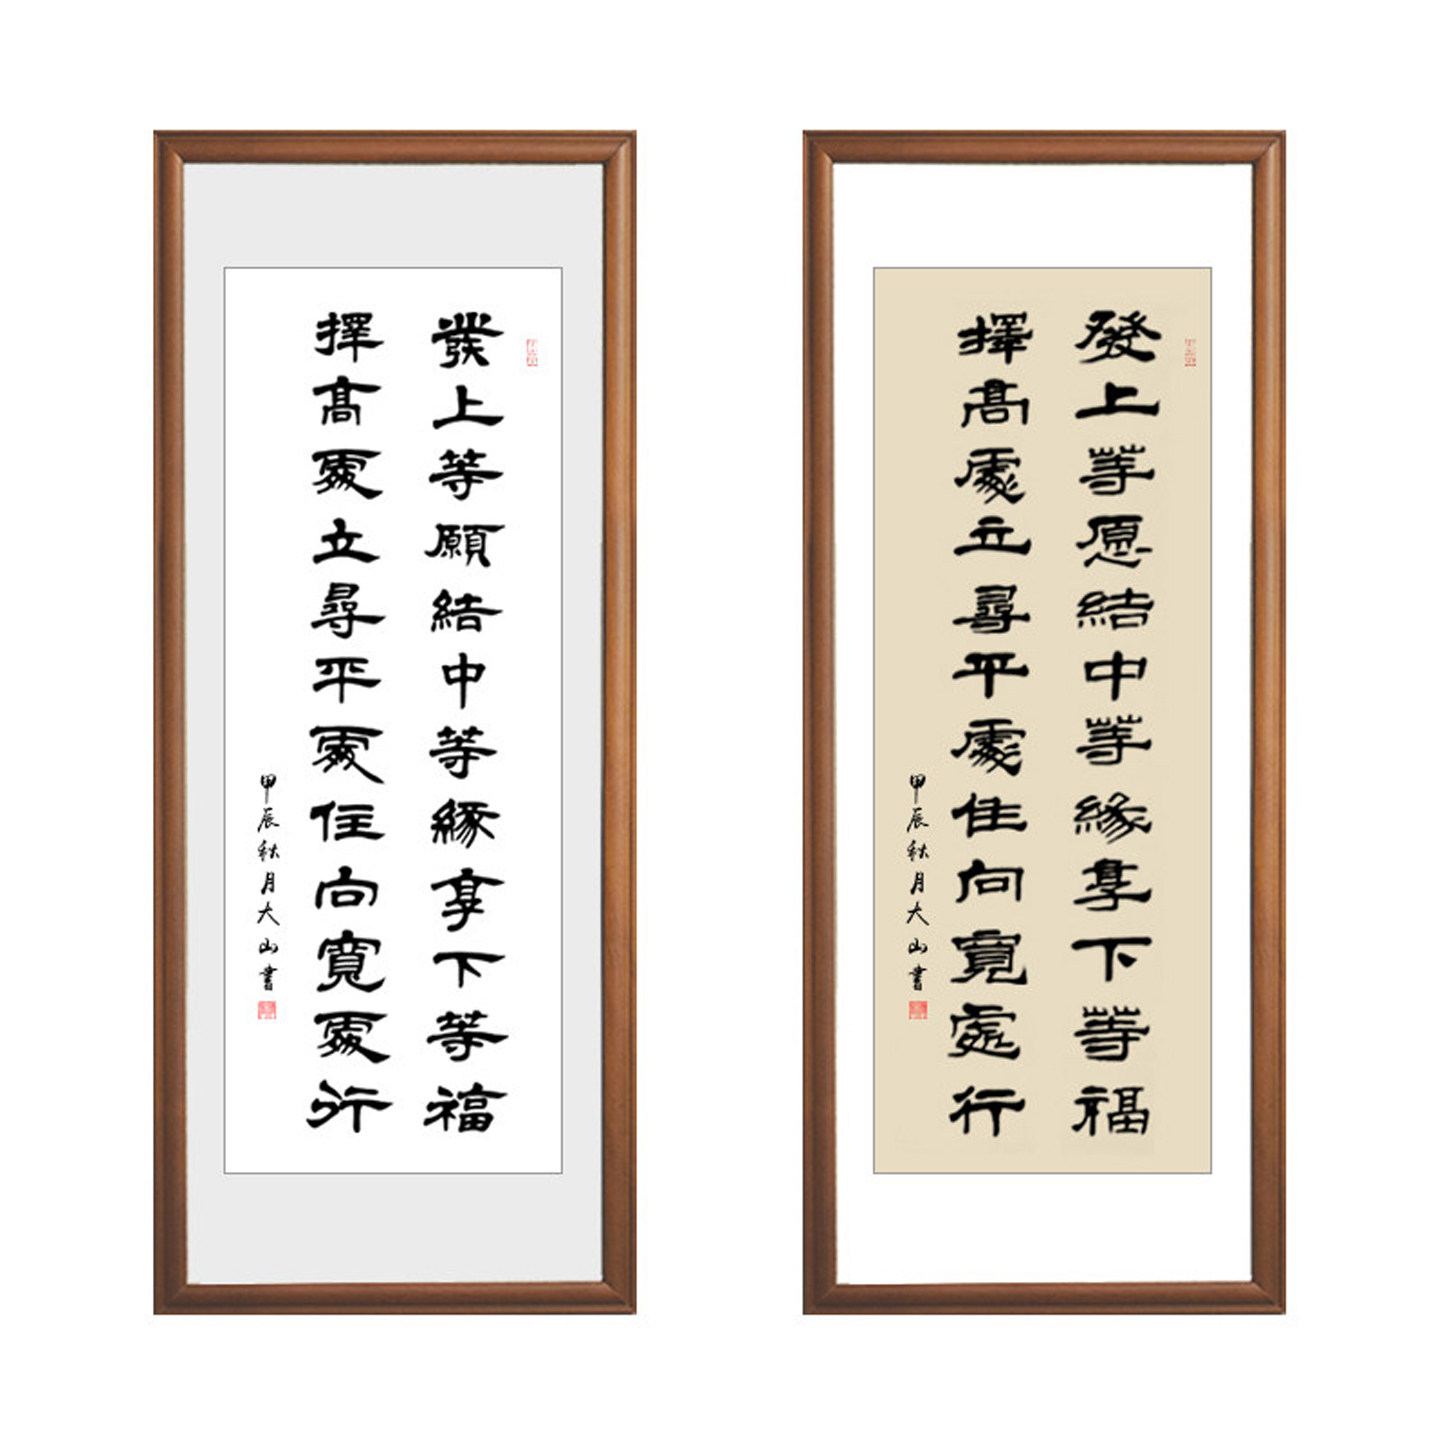 發上等願結中等緣享下等福
擇高處立尋平處住向寬處行
甲辰秋月大山書
發上等愿結中等緣享下等福
擇高處立尋平處住向寬處行
甲辰秋月大山書